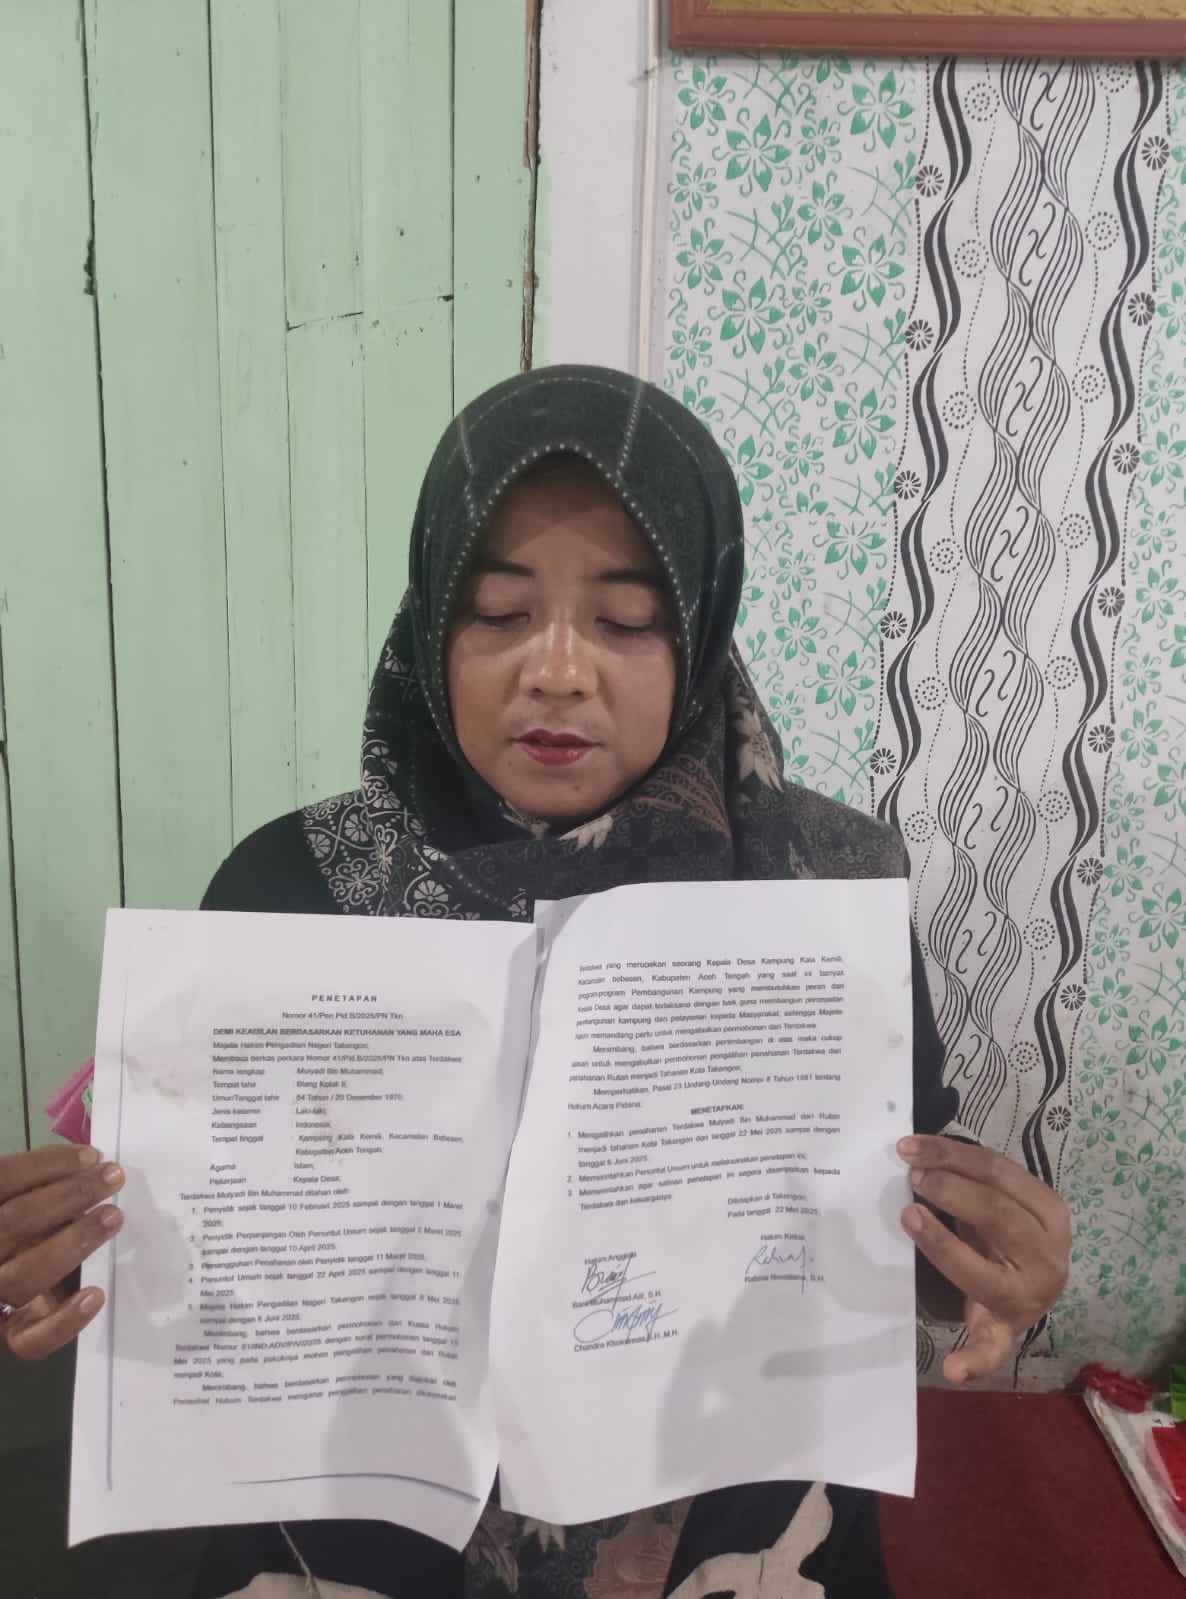 PENETAPAN
Nomor 41/Pen Pid.B/2025/PN Tkn
DEMI KEADILAN BERDASARKAN KETUHANAN YANG MAHA ESA
Majelis Hakim Pengadilan Negeri Takengon;
Membaca berkas perkara Nomor 41/Pid.B/2025/PN Tkn atas Terdakwa
Nama lengkap : Mulyadi Bin Muhammad;
Tempat lahir : Blang Kolak II;
Umur/Tanggal lahir : 54 Tahun / 20 Desember 1970;
Jenis kelamin : Laki-laki;
Kebangsaan : Indonesia;
Tempat tinggal : Kampung Kala Kemili, Kecamatan Bebesen,
Kabupaten Aceh Tengah;
Agama : Islam;
Pekerjaan : Kepala Desa;
Terdakwa Mulyadi Bin Muhammad ditahan oleh:
1. Penyidik sejak tanggal 10 Februari 2025 sampai dengan tanggal 1 Maret
2025;
2. Penyidik Perpanjangan Oleh Penuntut Umum sejak tanggal 2 Maret 2025
sampai dengan tanggal 10 April 2025;
3. Penangguhan Penahanan oleh Penyidik tanggal 11 Maret 2025;
4. Penuntut Umum sejak tanggal 22 April 2025 sampai dengan tanggal 11
Mei 2025;
5. Majelis Hakim Pengadilan Negeri Takengon sejak tanggal 8 Mei 2025
sampai dengan 6 Juni 2025;
Menimbang, bahwa berdasarkan permohonan dari Kuasa Hukum
Terdakwa Nomor dengan surat permohonan tanggal
Mei 2025 yang pada pokoknya mohon pengalihan penahanan dari Rutan
menjadi Kota;
Menimbang, bahwa berdasarkan permohonan yang diajukan oleh
Penasihat Hukum Terdakwa mengenai pengalihan penahanan dikarenakan
Terdakwa yang merupakan seorang Kepala Desa Kampung Kala Kemili,
Kecamatan bebesen, Kabupaten Aceh Tengah yang saat ini banyak
program-program Pembangunan Kampung yang membutuhkan peran dari
Kepala Desa agar dapat terlaksana dengan baik guna membangun percepatan
pembangunan kampung dan pelayanan kepada Masyarakat, sehingga Majelis
Hakim memandang perlu untuk mengabulkan permohonan dari Terdakwa;
Menimbang, bahwa berdasarkan pertimbangan di atas maka cukup
alasan untuk mengabulkan permohonan pengalihan penahanan Terdakwa dari
penahanan Rutan menjadi Tahanan Kota Takengon;
Memperhatikan, Pasal 23 Undang-Undang Nomor 8 Tahun 1981 tentang
Hukum Acara Pidana;
MENETAPKAN:
1. Mengalihkan penahanan Terdakwa Mulyadi Bin Muhammad dari Rutan
menjadi tahanan Kota Takengon dari tanggal 22 Mei 2025 sampai dengan
tanggal 6 Juni 2025;
2. Memerintahkan Penuntut Umum untuk melaksanakan penetapan ini;
3. Memerintahkan agar salinan penetapan ini segera disampaikan kepada
Terdakwa dan keluarganya;
Ditetapkan di Takengon;
Pada tanggal 22 Mei 2025
Hakim Anggota
Hakim Ketua,
Bani Muhammad Alif, S.H.
Rahma Novatiana, S.H.
Chandra Khoirunnas, S.H.,M.H.